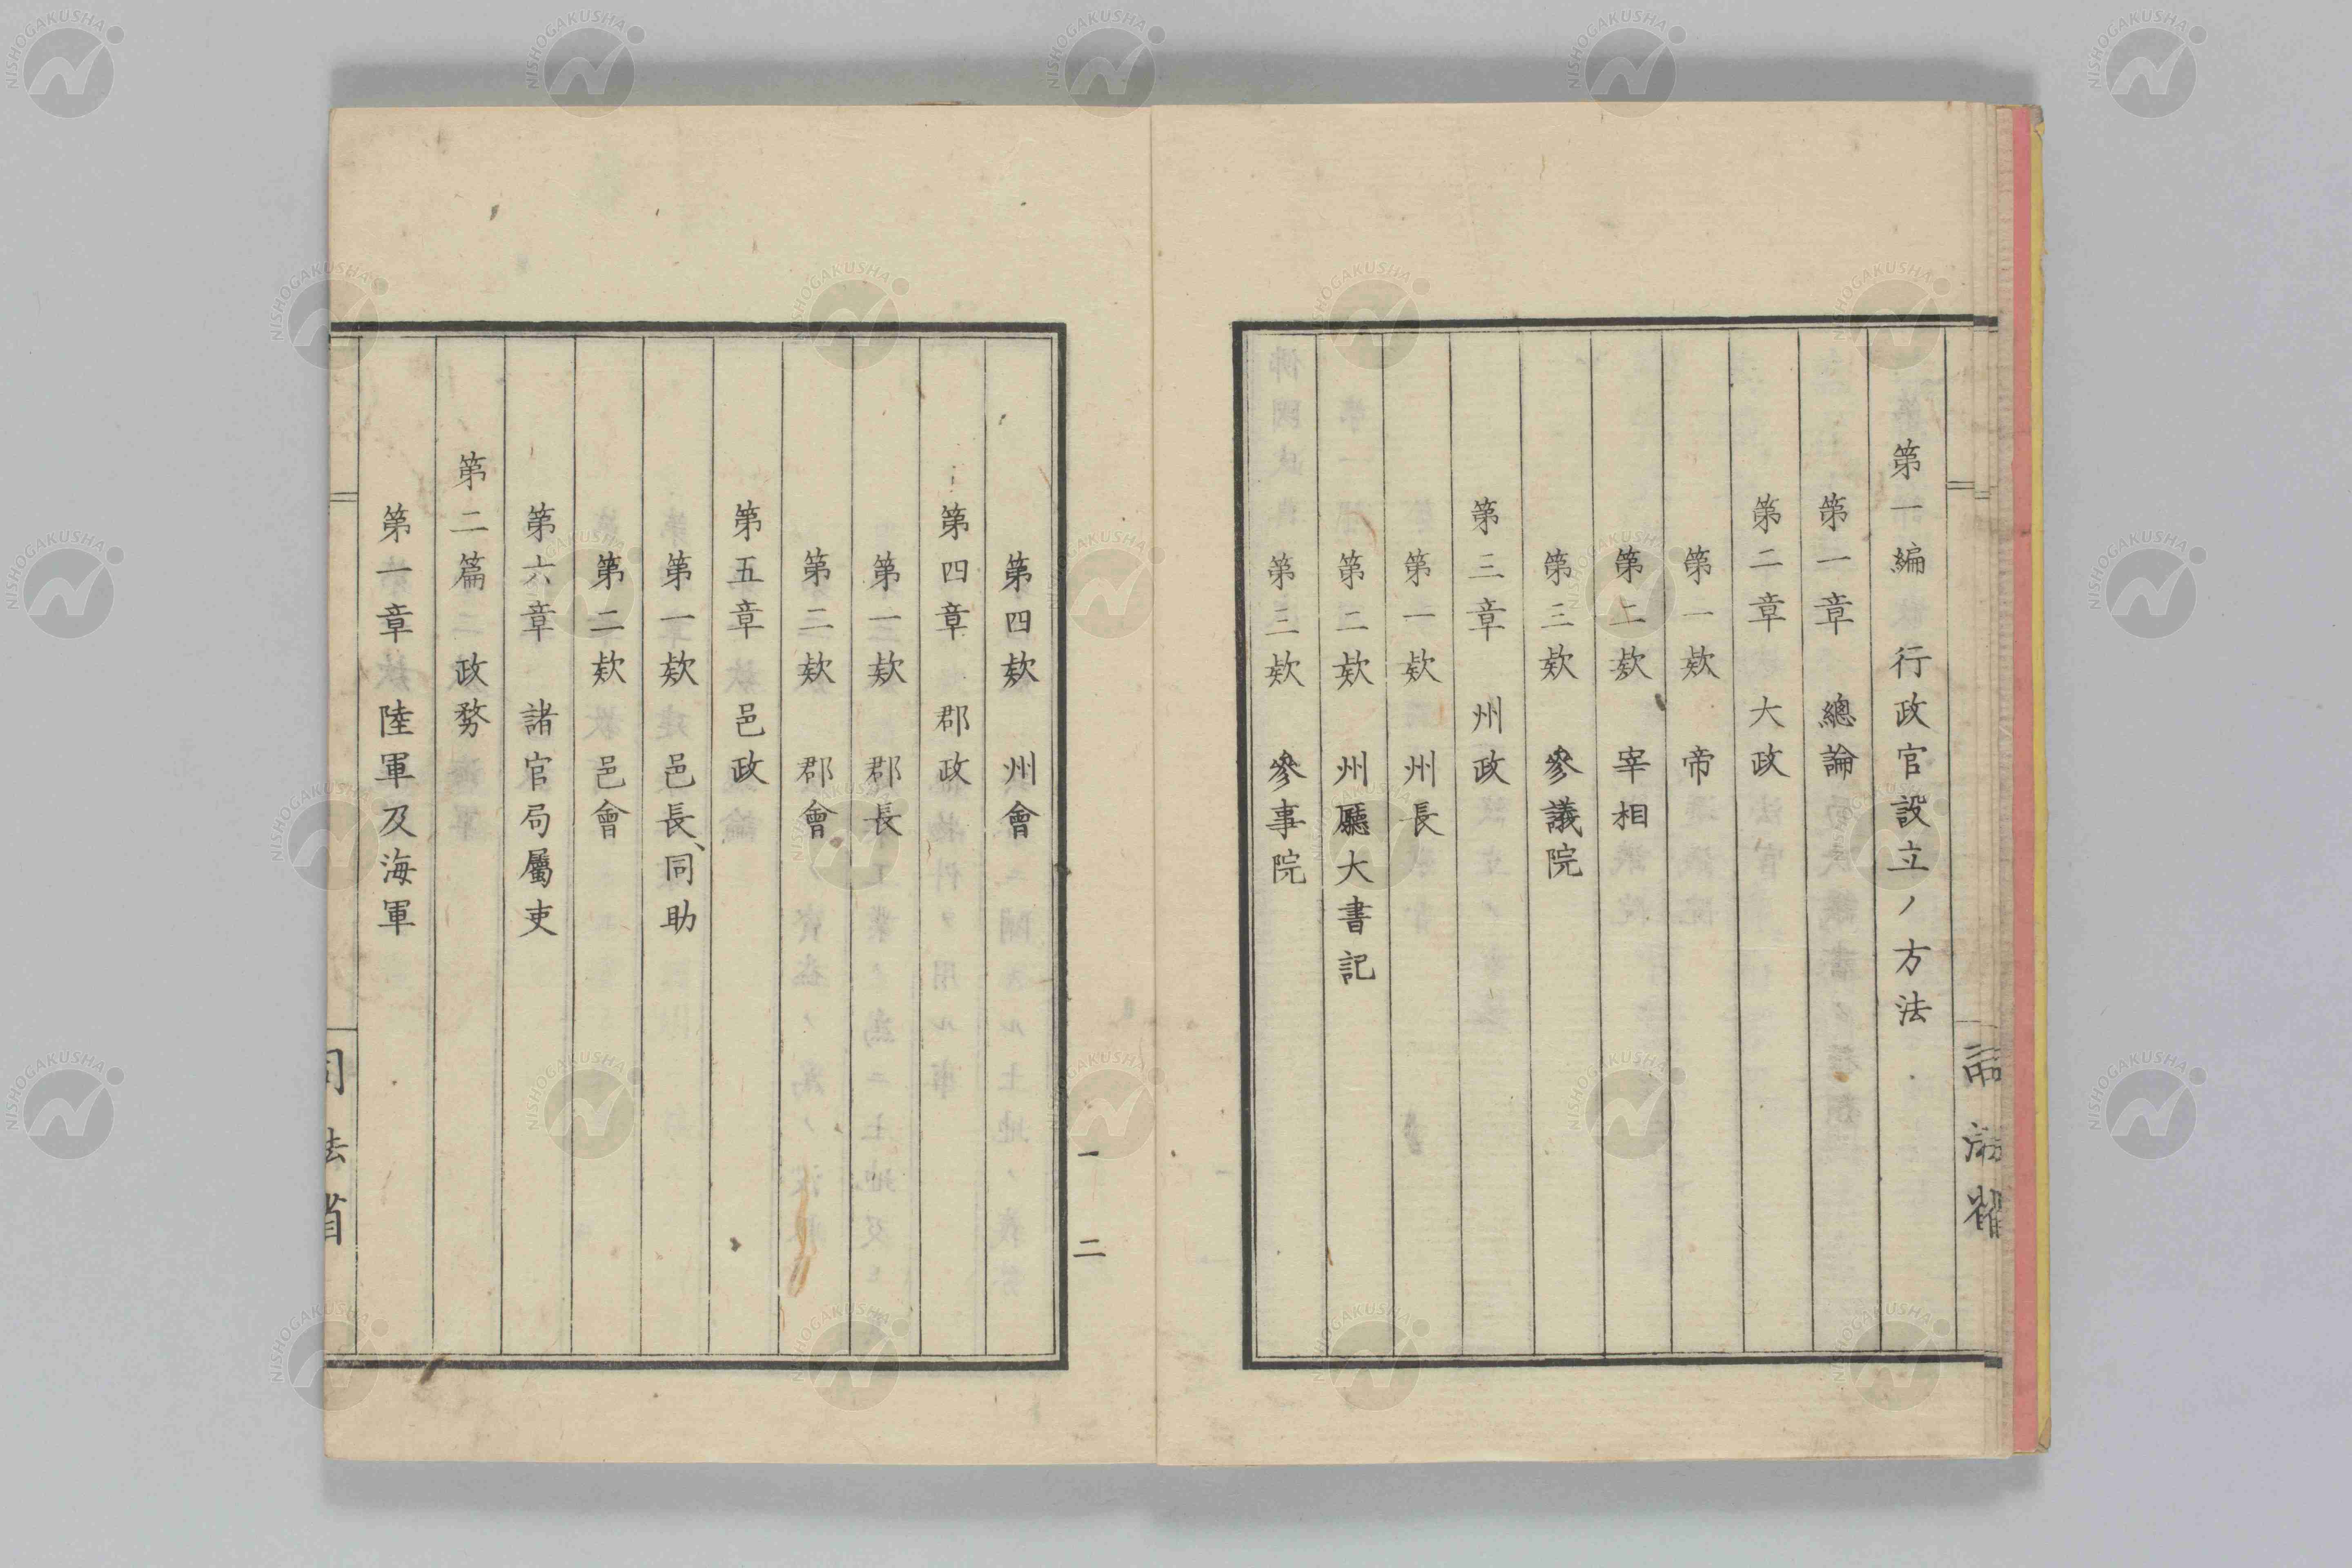 第一編 行政官設立ノ方法
第一章 總論
第二章 大政
第一欵 帝
第二欵 宰相
第三欵 參議院
第三章 州政
第一欵 州長
第二欵 州廳大書記
第三欵 參事院
第四欵 州會
第四章 郡政
第一欵 郡長
第二欵 郡會
第五章 邑政
第一欵 邑長、同助
第二欵 邑會
第六章 諸官局屬吏
第二篇 政務
第一章 陸軍及海軍
一 二
司法省
NISHOGAKUSHA